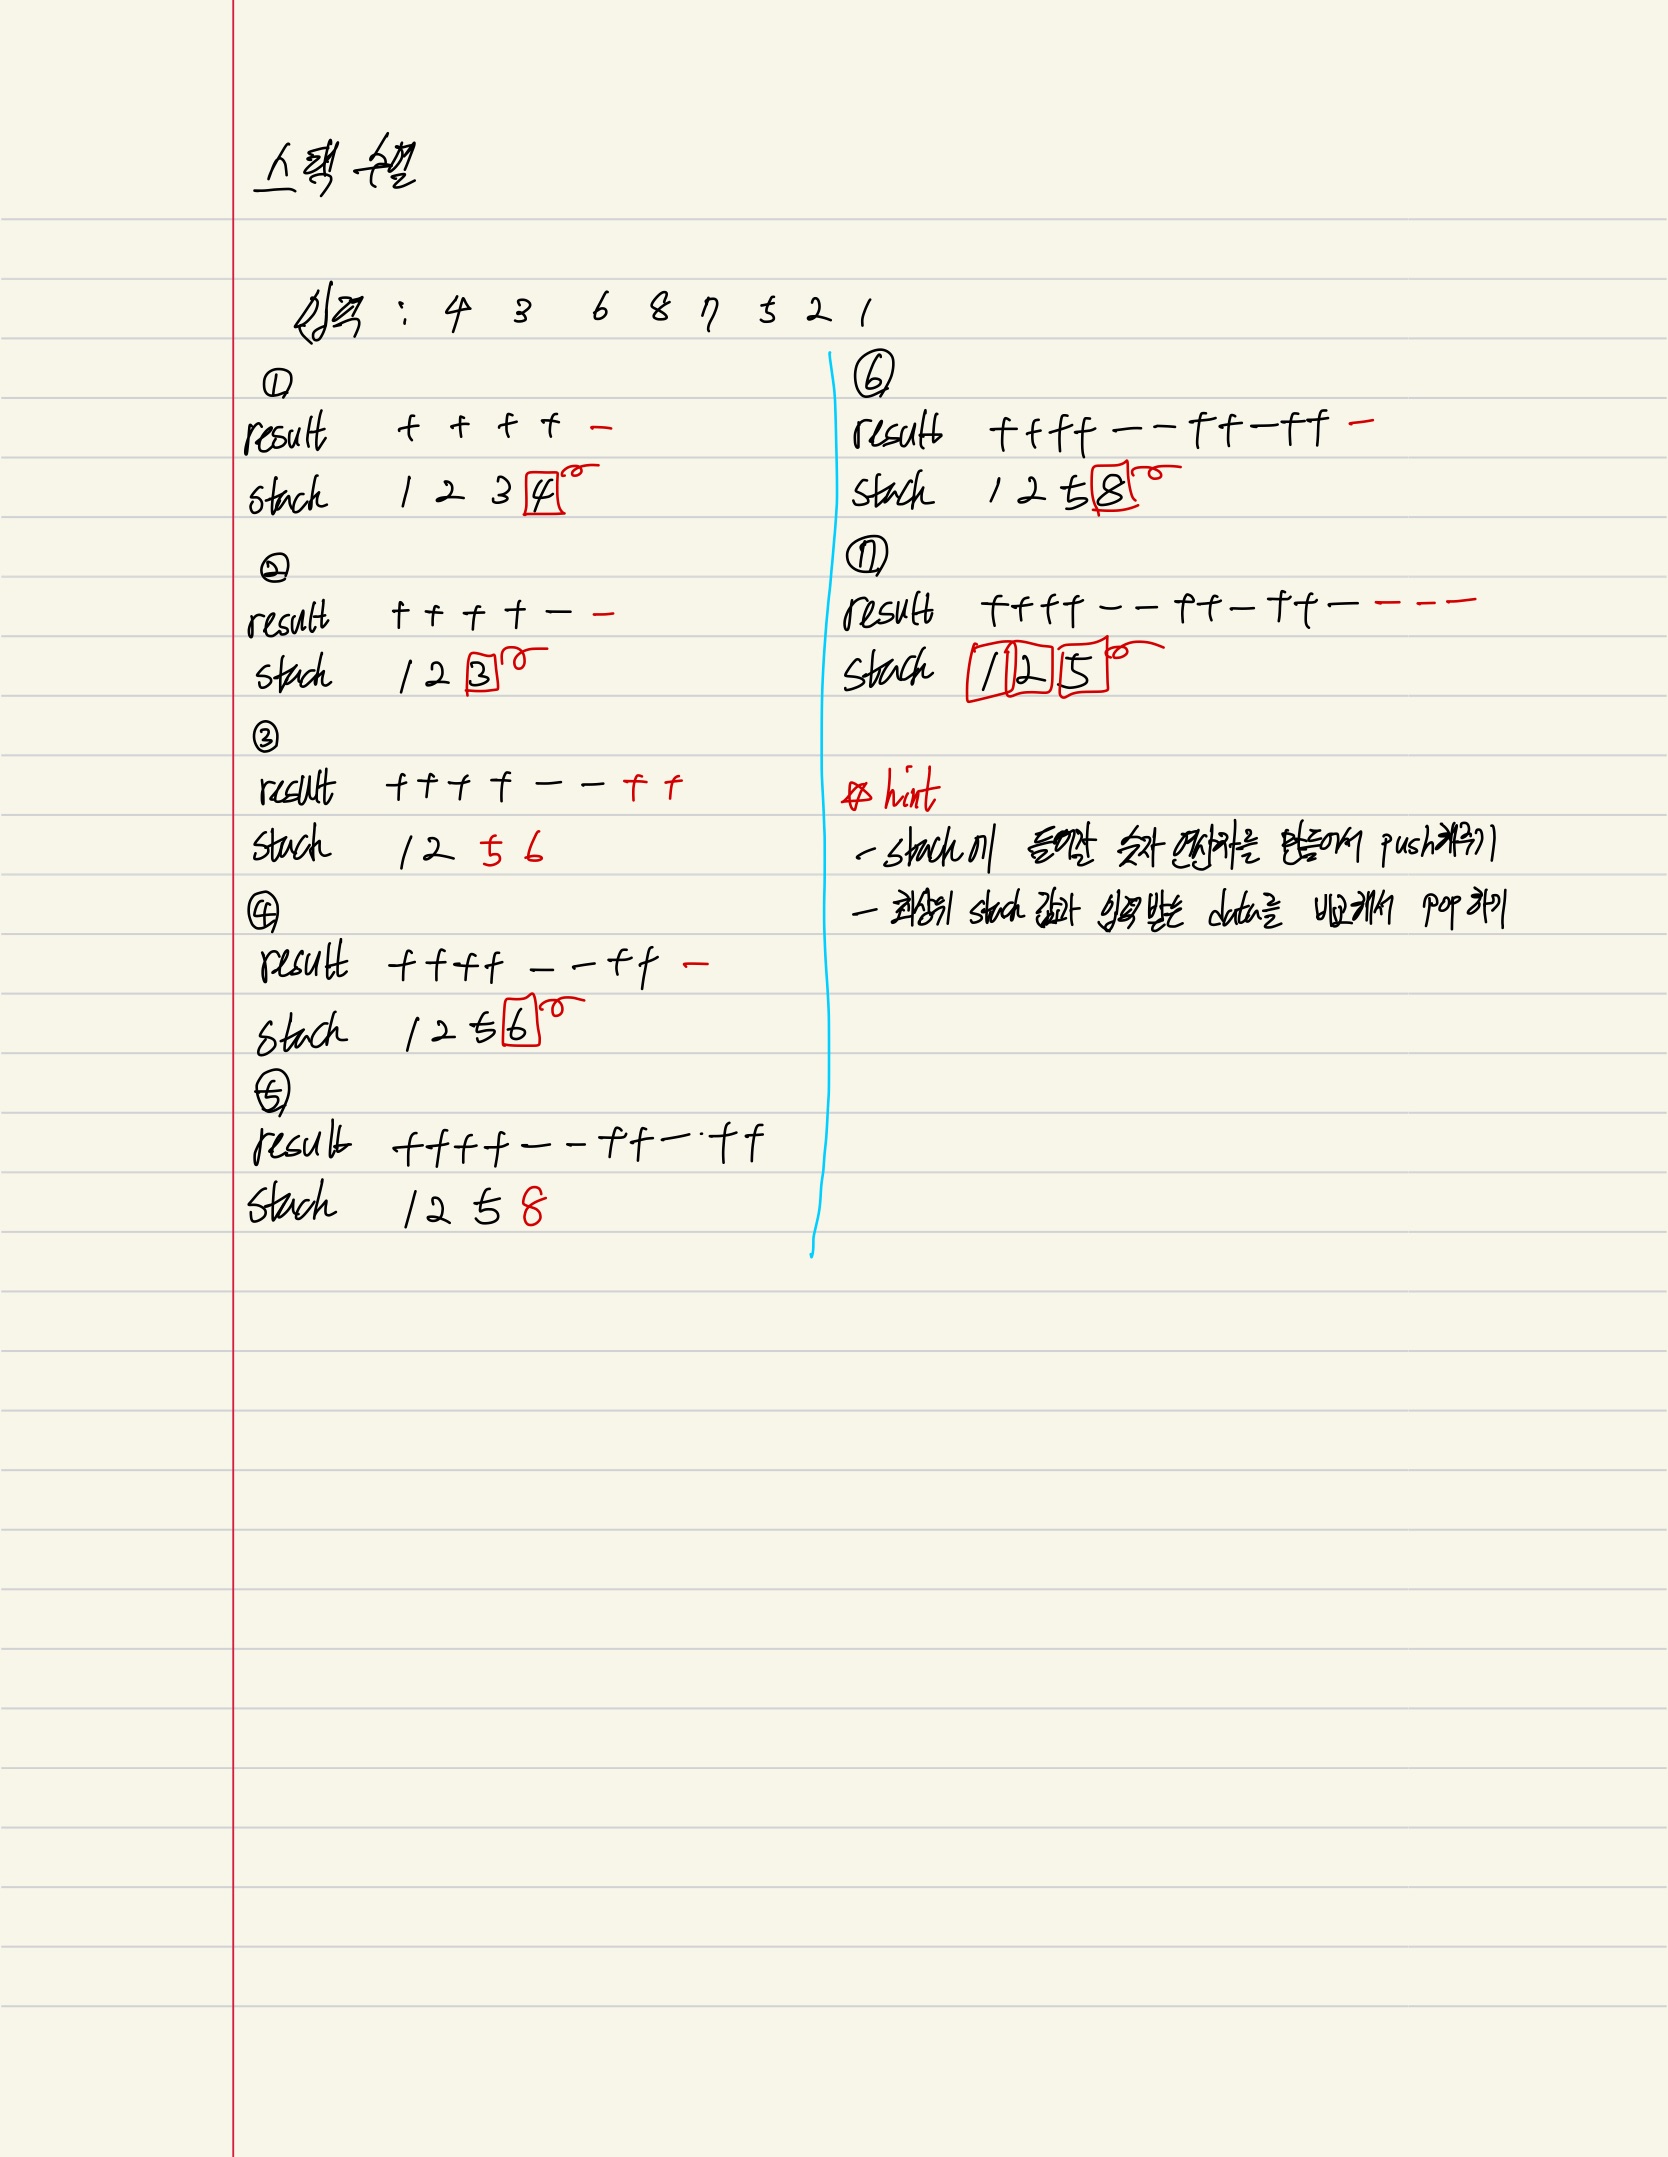 스택 수열
입력 : 4 3 6 8 7 5 2 1
①
result + + + + -
stack 1 2 3 4
②
result + + + + - -
stack 1 2 3
③
result + + + + - - + +
stack 1 2 5 6
④
result + + + + - - + + -
stack 1 2 5 6
⑤
result + + + + - - + + - + +
stack 1 2 5 8
⑥
result + + + + - - + + - + + -
stack 1 2 5 8
⑦
result + + + + - - + + - + + - - - -
stack 1 2 5
☆ hint
- stack에 들어갈 숫자 연산자를 만들어서 push해주기
- 최상위 stack 값과 입력 받는 data를 비교해서 pop하기